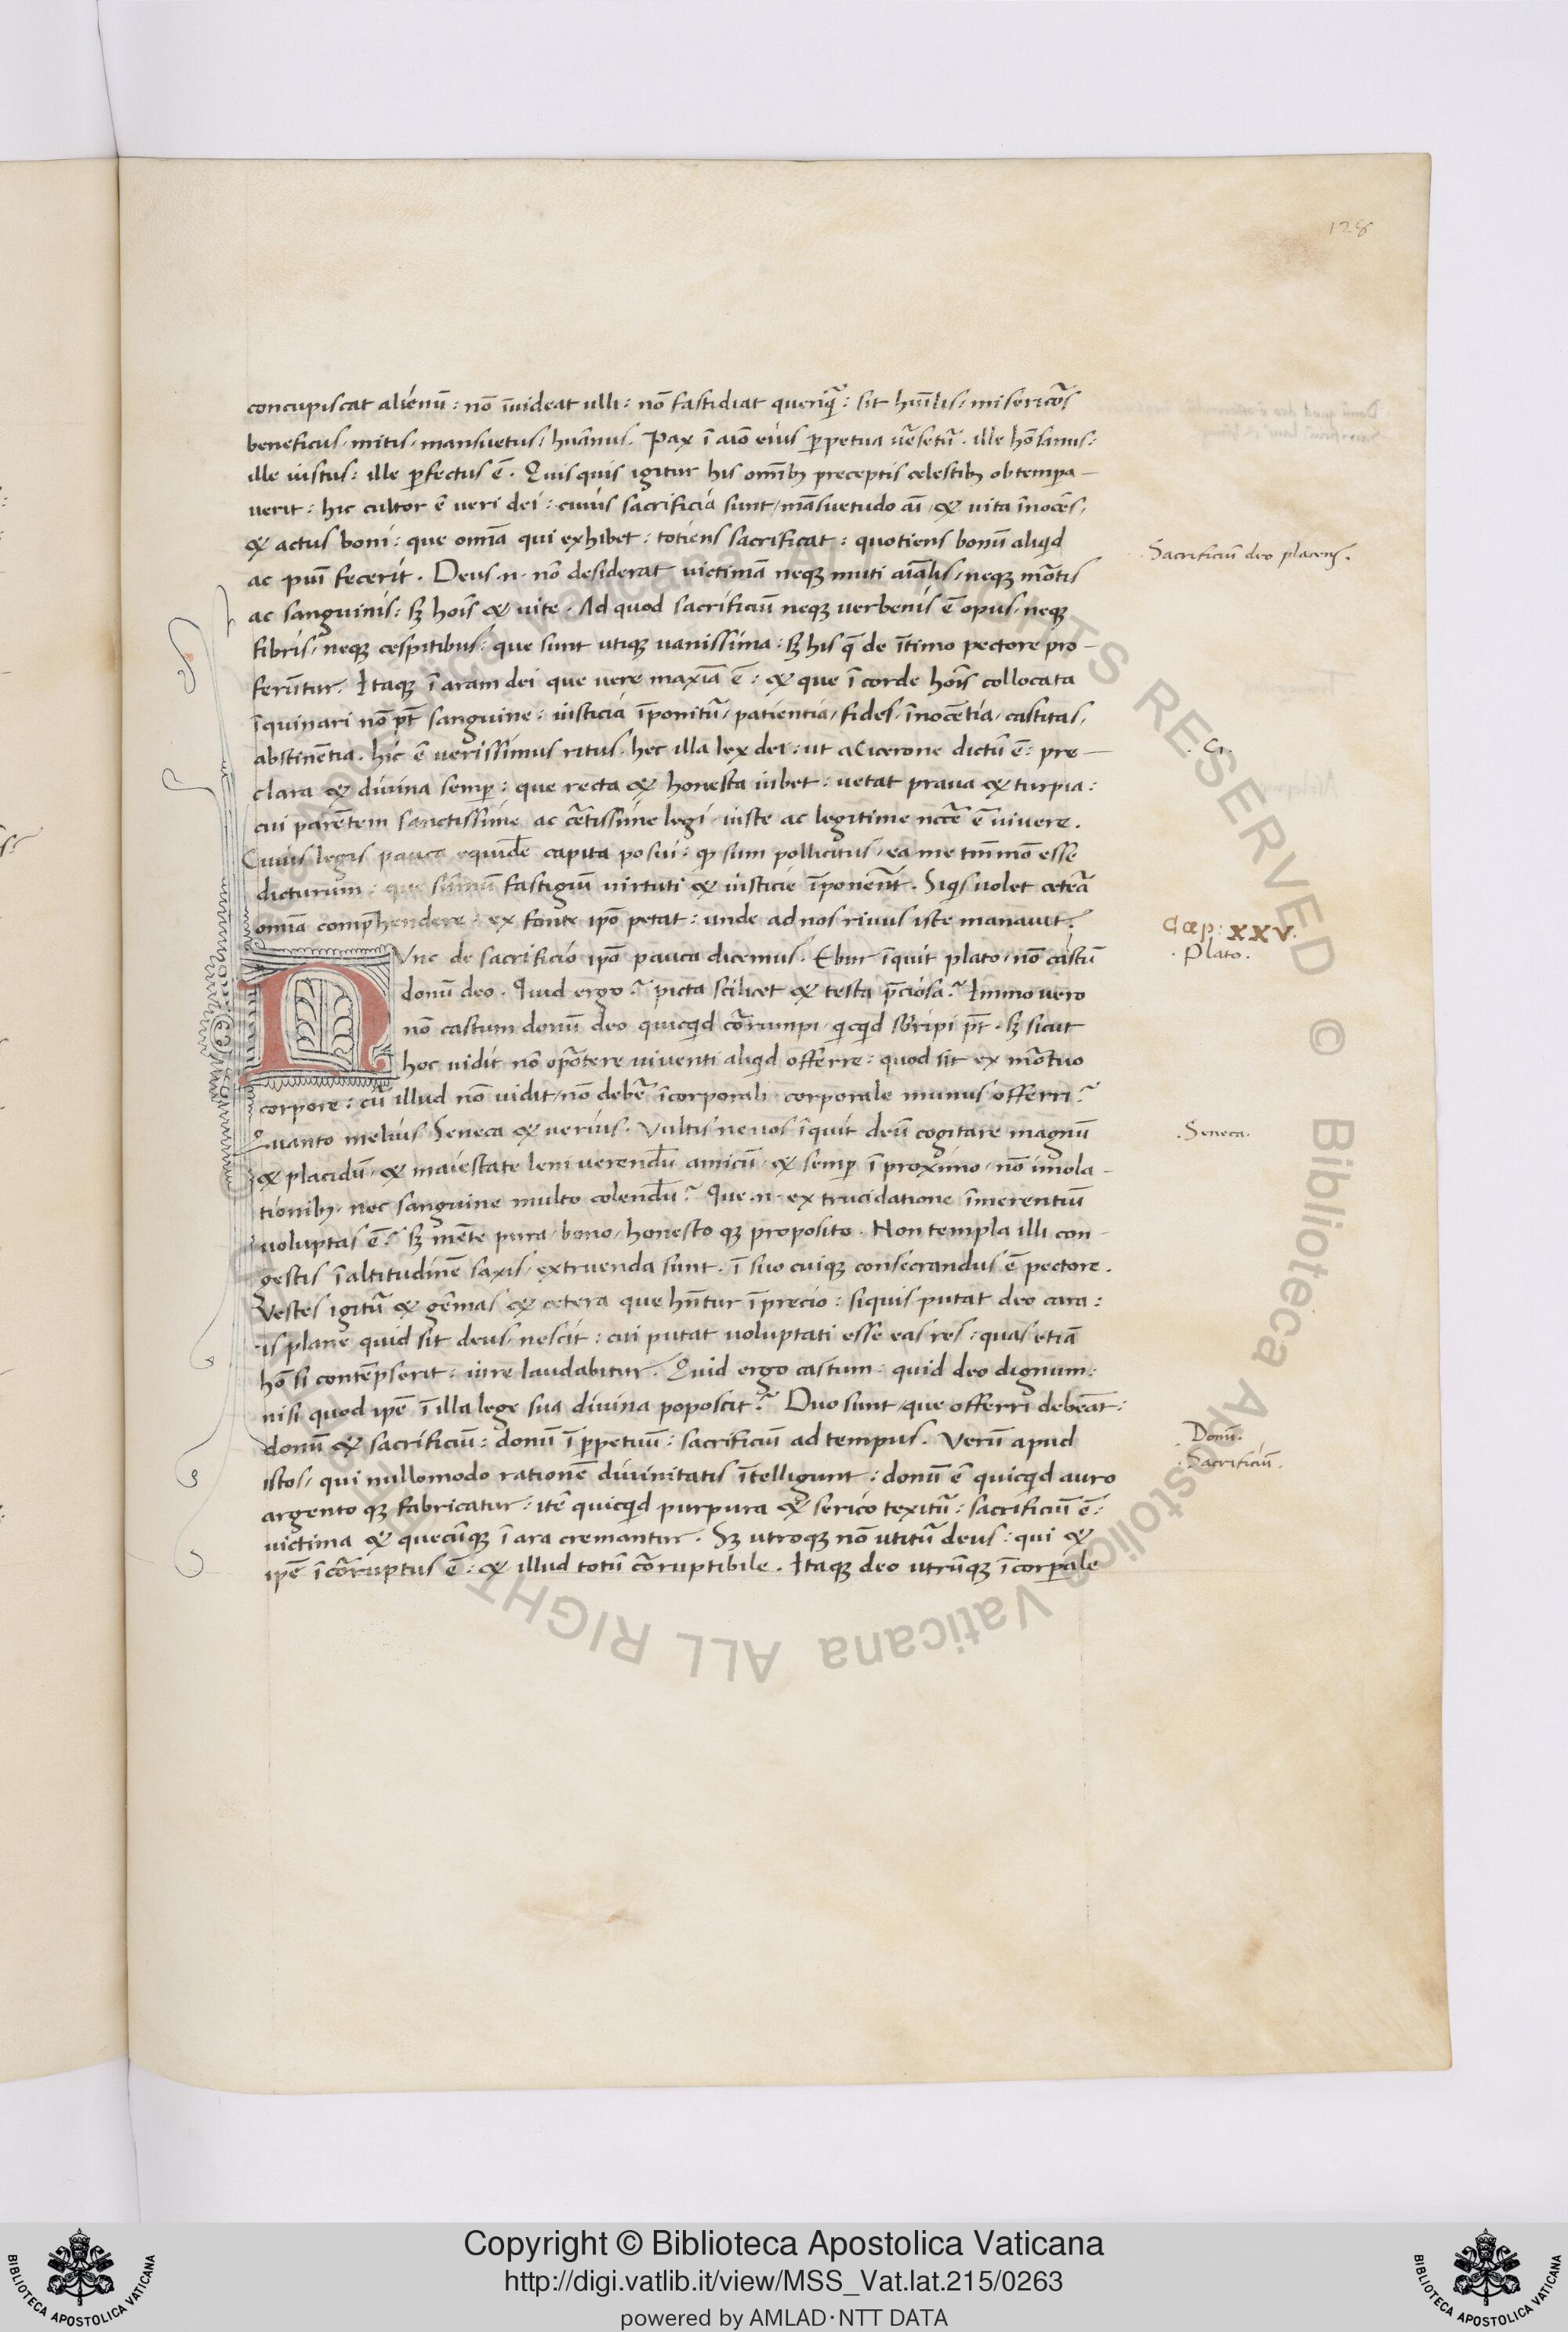 128
concupiscat alienũ : nõ ĩvideat ulli : nõ fastidiat quẽq̃ : sit hũilis / misericõs
beneficus / mitis / mansuetus / huãnus . Pax ĩ aĩo eius ꝑpetua v̾setur̃ . ille hõ sanus :
ille iustus : ille ꝑfectus ẽ . Quisquis igitur his omĩbꝫ preceptis celestibꝫ obtempa –
verit : hic cultor ẽ veri dei : cuius sacrificia sunt / mãsuetudo aĩ / & vita ĩnocẽs /
& actus boni : que omĩa qui exhibet : totiens sacrificat : quotiens bonũ aliqid
ac piũ fecerit . Deus .n. nõ desiderat victimã neqꝫ muti aĩalis / neqꝫ mõtis
ac sanguinis : sꝫ hoĩs & vite . Ad quod sacrificiũ neqꝫ verbenis ẽ opus / neqꝫ
fibris / neqꝫ cespitibus : que sunt utiqꝫ vanissima : sꝫ his q̃ de ĩtimo pectore pro –
ferũtur . Itaqꝫ ĩ aram dei que vere maxiã ẽ : & que ĩ corde hoĩs collocata
ĩquinari nõ pt̃ sanguine : iusticia ĩponitur̃ / patientia / fides / ĩnocẽtia / castitas /
abstinẽtia . hic ẽ verissimus ritus . hec illa lex dei : ut a Cicerone dictũ ẽ : pre –
clara & divina semꝑ : que recta & honesta iubet : vetat prava & turpia :
cui parẽtem sanctissime ac cẽtissime legi / iuste ac legitime nccẽ ẽ vivere .
Cuius legis pauca equidẽ capita posui : ꝙ sum pollicitus / ea me tm̃mõ esse
dicturum : que sũmũ fastigiũ virtuti & iusticie ĩponerẽt . Siqs volet ceteã
omĩa comp̃hendere : ex fonte ipõ petat : unde ad nos rivus iste manavit .
Nvnc de sacrificio ipõ pauca dicemus . Ebur ĩquit plato / nõ castũ
donũ deo . Quid ergo ? picta scilicet & testa p̃ciosa ? Immo vero
nõ castum donũ deo quicqid cõrumpi / qicqid sbripi pt̃ . sꝫ sicut
hoc vidit nõ opõtere viventi aliqid offerre : quod sit ex mõtuo
corpore : cũ illud nõ vidit / nõ debẽ ĩcorporali corporale munus offerri ?
Quanto melius Seneca & verius . Vultis ne vos ĩquit deũ cogitare magnũ
& placidũ / & maiestate leni verendũ amicũ / & semꝑ ĩ proximo / nõ ĩmola –
tionibꝫ / nec sanguine multo colendũ ? Que .n. ex trucidatione ĩmerentiũ
voluptas ẽ ? sꝫ mẽte pura / bono / honesto qꝫ proposito . Non templa illi con –
gestis ĩ altitudinẽ saxis / extruenda sunt . ĩ suo cuiqꝫ consecrandus ẽ pectore .
Vestes igitur̃ & gẽmas & cetera que hñtur ĩ precio : siquis putat deo cara :
is plane quid sit deus / nescit : cui putat voluptati esse eas res : quas etiã
hõ si contẽpserit : iure laudabitur . Quid ergo castum : quid deo dignum :
nisi quod ipẽ ĩ illa lege sua divina poposcit ? Duo sunt / que offerri debeãt :
donũ & sacrificiũ : donũ ĩ ꝑpetuũ : sacrificiũ ad tempus . Verũ apud
istos / qui nullomodo rationẽ divinitatis ĩtelligunt : donũ ẽ quicqid auro
argento qꝫ fabricatur : itẽ quicqid purpura & serico texitur̃ : sacrificiũ ẽ :
victima & quecũqꝫ ĩ ara cremantur . Sꝫ utroqꝫ nõ utitur̃ deus : qui &
ipẽ ĩcõruptus ẽ : & illud totũ cõruptibile . Itaqꝫ deo utrũqꝫ ĩcorꝑale
Sacrificiũ deo placens .
. Ci .
Cap : XXV .
. Plato .
. Seneca .
. Donũ .
. Sacrificiũ .
© Biblioteca Apostolica Vaticana ALL RIGHTS RESERVED
Copyright © Biblioteca Apostolica Vaticana
http://digi.vatlib.it/view/MSS_Vat.lat.215/0263
powered by AMLAD·NTT DATA
BIBLIOTECA APOSTOLICA VATICANA
BIBLIOTECA APOSTOLICA VATICANA